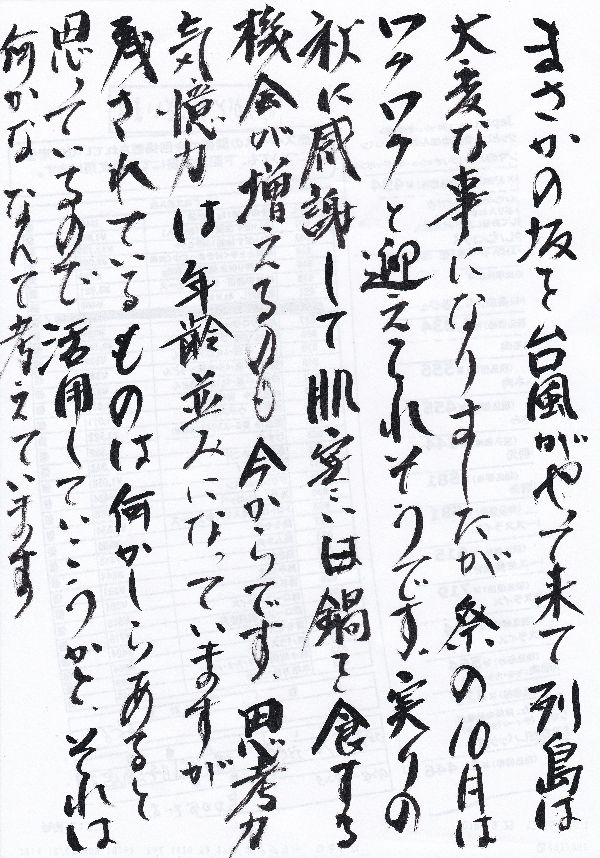 まさかの坂を台風がやって来て列島は
大変な事になりましたが祭の10月は
ワクワクと迎えられそうです、実りの
秋に感謝して肌寒い日は鍋を食する
機会が増えるのも今からです、思考力
気憶力は年齢並みになっていますが
残されているものは何かしらあると
思っているので活用していこうかと、それは
何かな なんて考えています